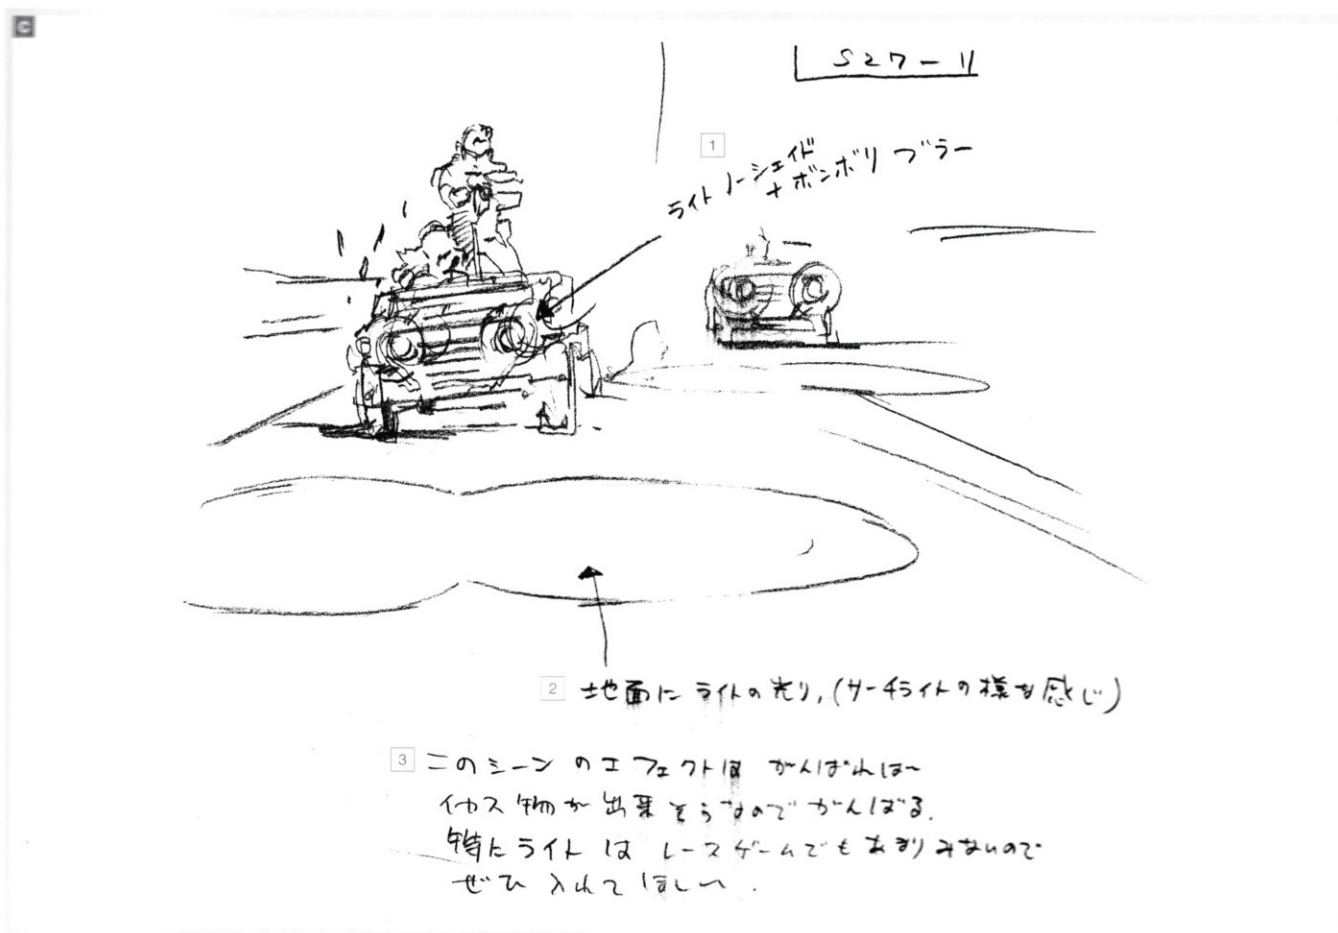 C
S27-11
1
ライト ノーシェイド
+ ボンボリ ブラー
2 地面に ライトの光り,(サーチライトの様な感じ)
3 このシーン のエフェクトは がんばれば〜
イカス物が出来そうなのでがんばる.
特にライトは レースゲームでもあまりみないので
ぜひ入れてほしい.